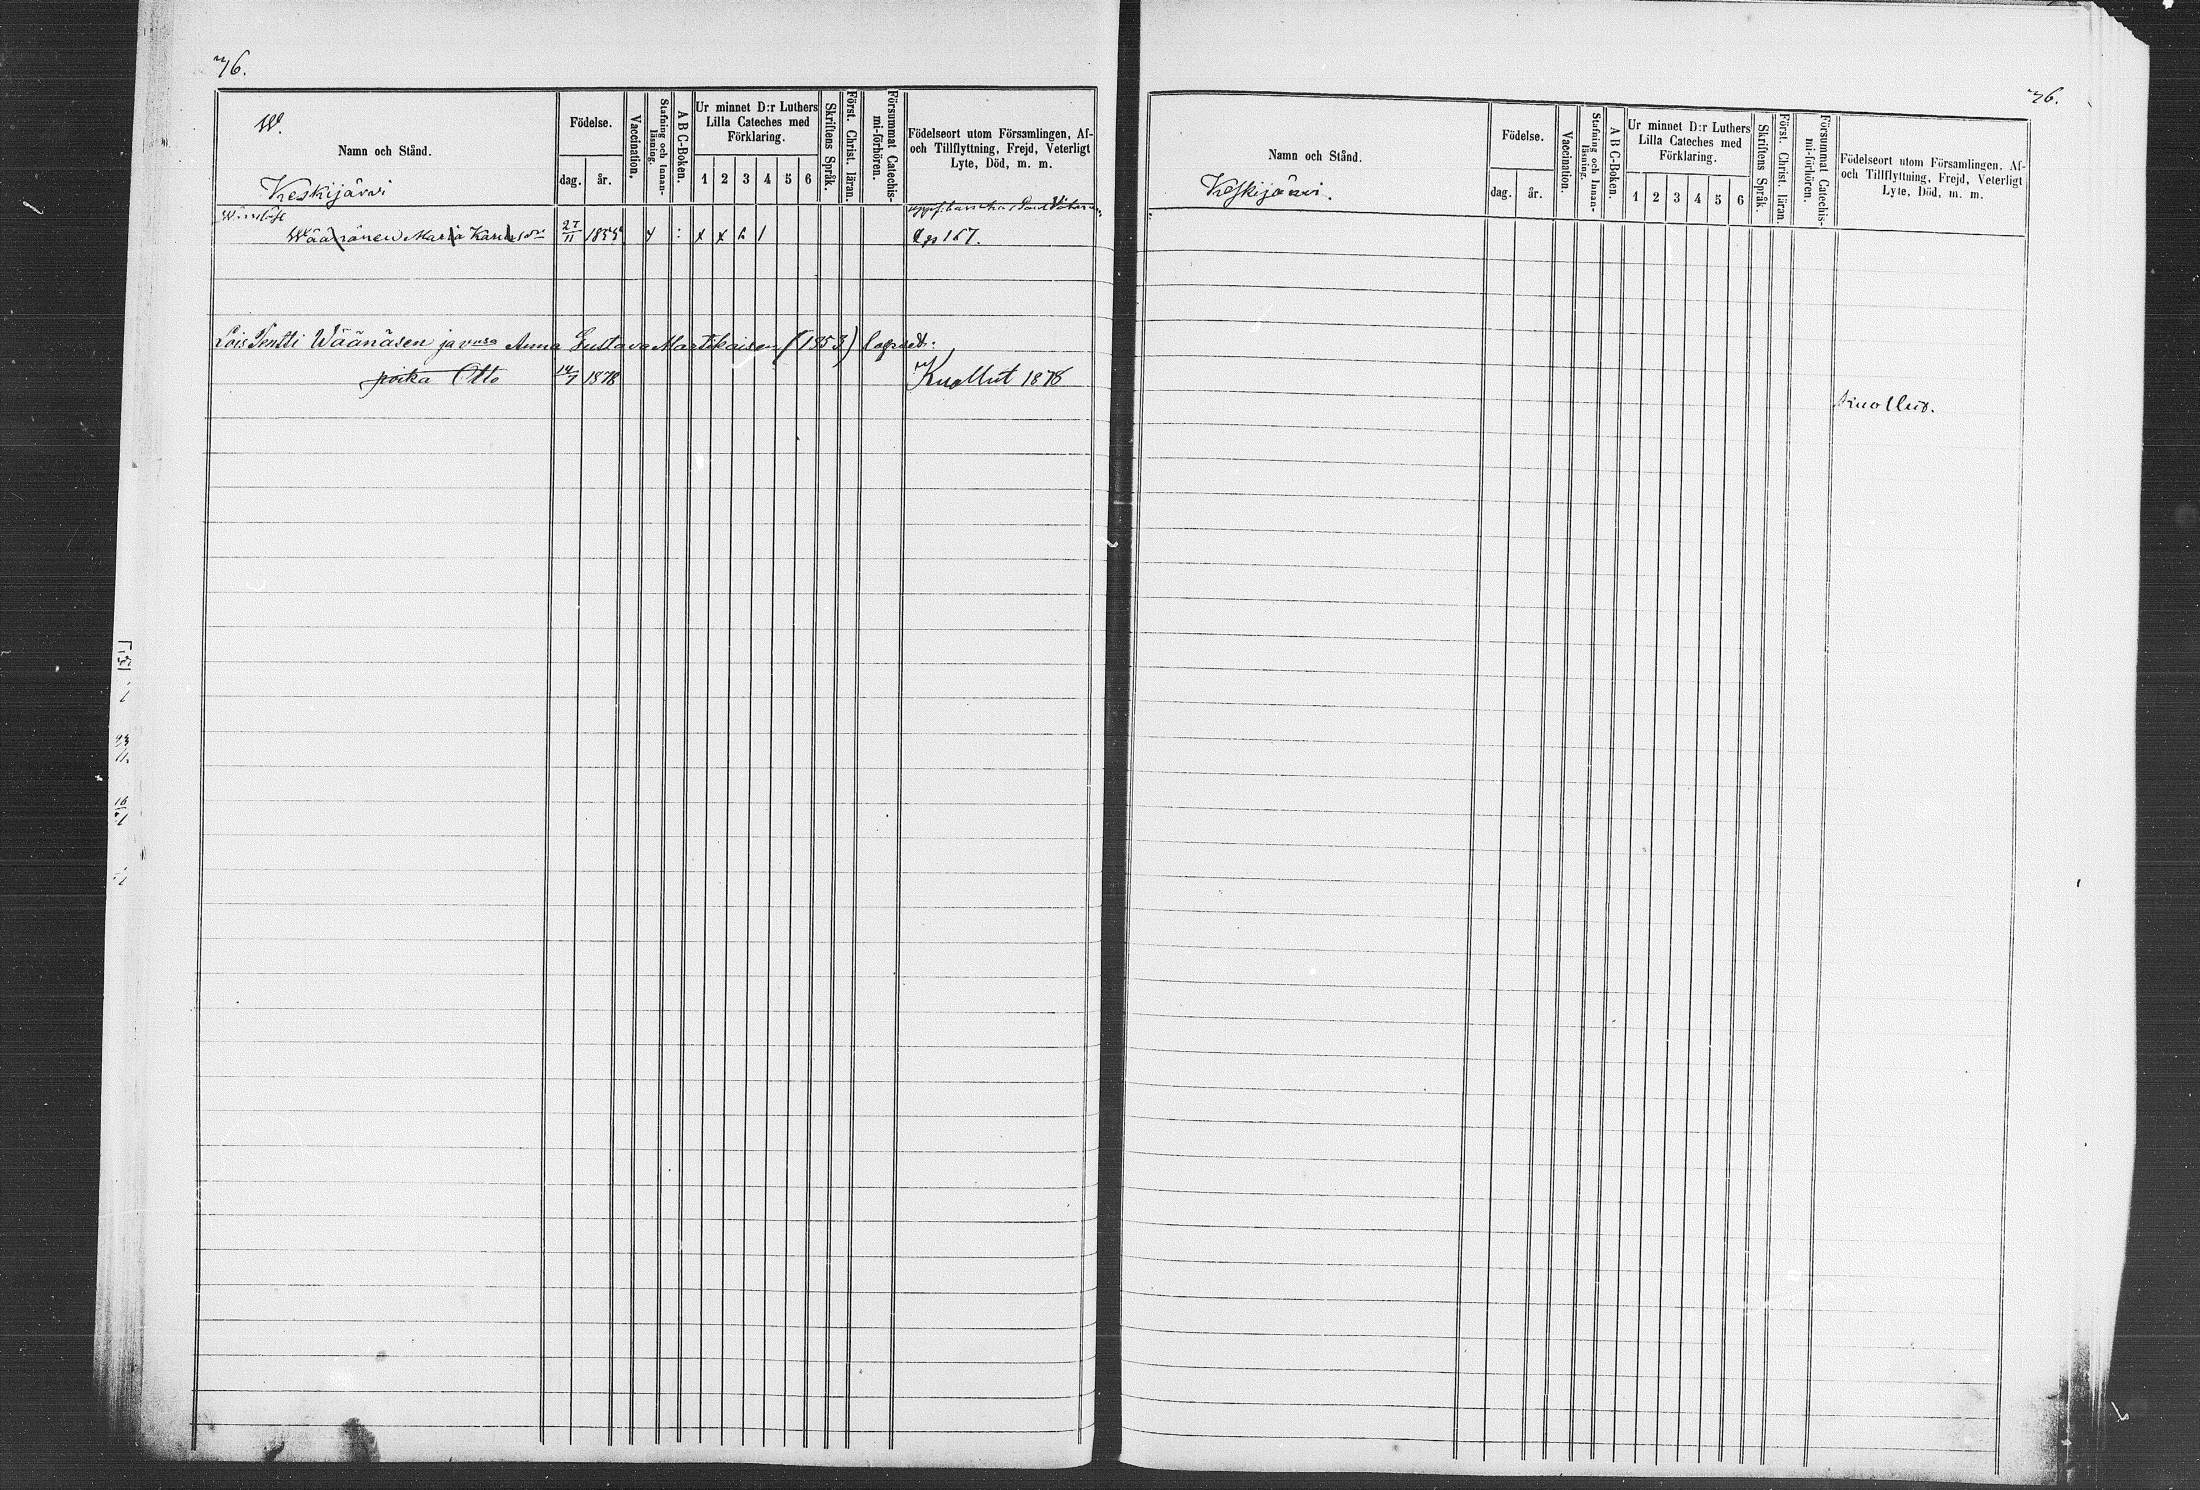 76.
W.
Namn och Stånd.
Keskijärvi
Födelse.
dag. år.
Vaccination.
Stafning och Innan-
läsning.
A B C-Boken.
Ur minnet D:r Luthers
Lilla Cateches med
Förklaring.
1 2 3 4 5 6
Skriftens Språk.
Först. Christ. läran.
Försummat Catechis-
mi-förhören.
Födelseort utom Församlingen, Af-
och Tillflyttning, Frejd, Veterligt
Lyte, Död, m. m.
Wäänänen Maria 27/11 1855 x : x x 1 167.
Lois Pentti Wäänäsen ja Anna Gustava Martikaisen (1853)
poika Otto 14/7 1878 Kuollut 1878
76.
Namn och Stånd.
Keskijärvi.
Födelse.
dag. år.
Vaccination.
Stafning och Innan-
läsning.
A B C-Boken.
Ur minnet D:r Luthers
Lilla Cateches med
Förklaring.
1 2 3 4 5 6
Skriftens Språk.
Först. Christ. läran.
Försummat Catechis-
mi-förhören.
Födelseort utom Församlingen, Af-
och Tillflyttning, Frejd, Veterligt
Lyte, Död, m. m.